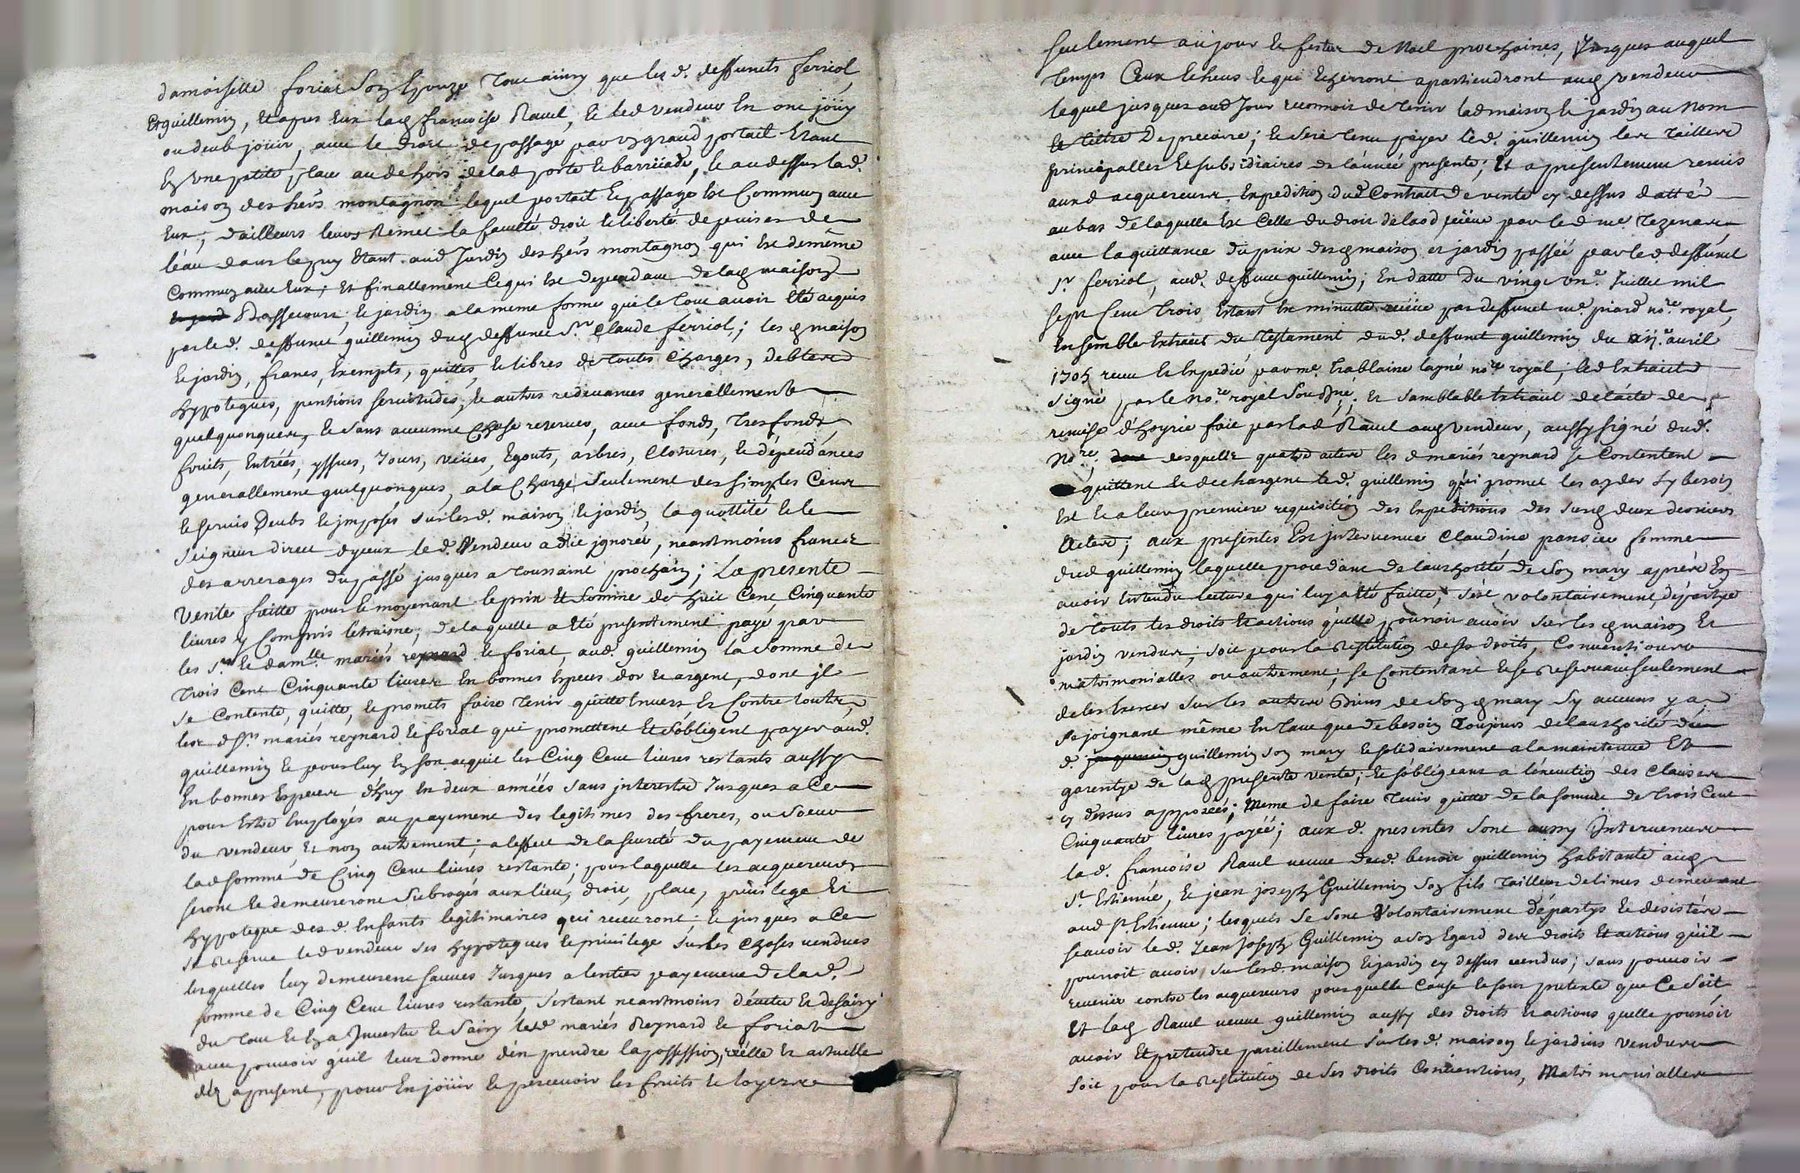 damoiselle foriat son Epouze tout ainsy que les d. deffuncts ferriol,
Et guillemin, Et apres Eux lad françoise Ravel, Et led vendeur En ont joüy
ou deub joüir, avec le droit de passage par un grand portail Etant
En une petite place au dehors de lad porte Et barricade, Et au dessus lad.
maison des hérs montagnon lequel portail Et passage Est Commun avec
Eux; d'ailleurs leurs Remet la faculté droit Et liberté de puiser de
l'eau dans le puy Etant aud Jardin des hérs montagnon qui Est demême
Commun avec Eux; Et finallement Ce qui Est dependant de lad maison
Et jardin a la meme forme que le tout avoir Eté acquis
par led. deffunct guillemin dud deffunct Sr. Claude ferriol; lesd maison
Et jardin, francs, Exempts, quittes, Et libres de toutes Charges, debtes
hypoteques, pentions servitudes, Et autres redevances generallement
quelquonques, Et sans aucunne Chose reserver, avec fonds, Tresfonds,
fruits, Entrées, yssues, Jours, veües, Egouts, arbres, Clotures, Et dépendances
generallement quelquonques, a la Charge seulement des simples Cens
Et servis Deubs Et jmposés sur lesd. maison Et jardin, la quottité Et le
seigneur direct dyceux led. Vendeur a dit ignorer, neantmoins francs
des arrerages du passé jusques a toussaint prochain; La presente
Vente faitte pour Et moyenant le prix Et Somme de huit Cent Cinquante
livres y Compris letraine; de laquelle a Eté presentement payé par
les Sr. Et damlle mariés reynard Et foriat, aud. guillemin la Somme de
trois Cent Cinquante livres En bonnes Especes d'or Et argent, dont il
se Contente, quitte, Et promets faire tenir quitte Envers Et Contre touts,
lesd Srs mariés reynard Et foriat qui promettent Et S'obligent payer aud.
guillemin Et pour luy En son acquit les Cinq Cent livres restants aussy
En bonnes Especes d'huy En deux années sans interests Jusques a Ce
pour Estre Employés au payement des legitimes des freres, ou Soeur
du vendeur Et non autrement; a l'effect de la seureté du payement de
lad Somme de Cinq Cent livres restante; pour laquelle les acquereurs
seront Et demeureront Subrogés aux lieu, droit, place, privilege Et
hypoteque desd Enfants legitimaires qui recevront Et jusques a Ce
se Reserve led vendeur ses hypoteques Et privilege sur les Choses vendues
lesquelles luy demeurent sauves Jusques a lentier payement de lad.
somme de Cinq Cent livres restante s'estant neantmoins dévetu Et desaisy
du tout Et En a Jnvestu Et Saisy lesd. mariés Reynard Et foriat
avec pouvoir qu'il leur donne d'en prendre la possession, réélle Et actuelle
dez a present, pour En joüir Et percevoir les fruits Et loyers
seulement au jour Et festes de Noel prochaines, Jusques auquel
temps Ceux Echeus Et qui Echerront apartiendront aud vendeur
lequel jusques aud Jour reconnoit de tenir lad maison Et jardin au Nom
Et titre De precaire; Et sera tenu payer led. guillemin les tailles
principalles Et subsidiaires de l'année presente; Et a presentement remis
auxd acquereurs Expedition dud Contract de vente cy dessus datté
au bas de laquelle Est Celle du droit de laod reçüe par led me. Tezenas
avec la quittance du prix desd maison et jardin passée par led deffunct
Sr. ferriol, aud. deffunct guillemin; En datte du vingt un. Juillet mil
sept Cent trois Estant En minutte reçüe par deffunct me. piard nore. royal,
Ensemble Extrait du Testament dud. deffunct guillemin du avril
1705 receu Et Expedié par me Trablaine layné nore royal, led Extrait
signé par le nore. royal soussigné; Et semblable Extrait de l'acte de
remise d'hoyrie fait par lad Ravel aud vendeur, aussy signé dud.
Nore, desquelle quatre actes les d mariés reynard se Contentent
quittent Et dechargent led. guillemin qui promet les ayder sy besoin
Est Et a leur premiere requisition des Expeditions des susd deux derniers
actes; aux presentes Est jntervenue Claudine pansier femme
dud guillemin laquelle procedant de l'authorité de son mary aprés En
avoir Entendu lecture qui luy a Eté faitte, s'est volontairement départye
de touts les droits Et actions qu'elle pouvoit avoir sur lesd maison Et
jardin vendus, soit pour la Restitution de ses droits, Conventions
matrimonialles ou autrement, se Contentant Et se reservant seulement
de les Exercer sur les autres Biens de son d mary sy aucuns y a
se joignant même En tant que de besoin toujours de l'authorité dud
d. guillemin son mary Et solidairement a la maintenue Et
garentye de lad presente vente, Et s'obligeant a l'execution des Clauses
cy dessus apposées; meme de faire tenir quitte de la somme de trois Cent
Cinquante livres payée; aux d. presentes sont aussy Jntervenus
lad. françoise Ravel veuve dud. benoit guillemin habitante aud
St. Estienne, Et jean joseph Guillemin son fils tailleur de limes demeurant
aud St Estienne; lesquels se sont Volontairement départys Et desistés
scavoir led. Jean Joseph Guillemin a son Egard des droits Et actions qu'il
pourroit avoir, sur lesd. maison Et jardin cy dessus vendus; sans pouvoir
revenir contre les acquereurs pour quelle Cause Et sous pretexte que Ce soit
Et lad Ravel veuve guillemin aussy des droits Et actions quelle pourroit
avoir Et pretendre pareillement sur lesd. maison Et jardin vendus
soit pour la Restitution de ses droits Conventions, Matrimonialles